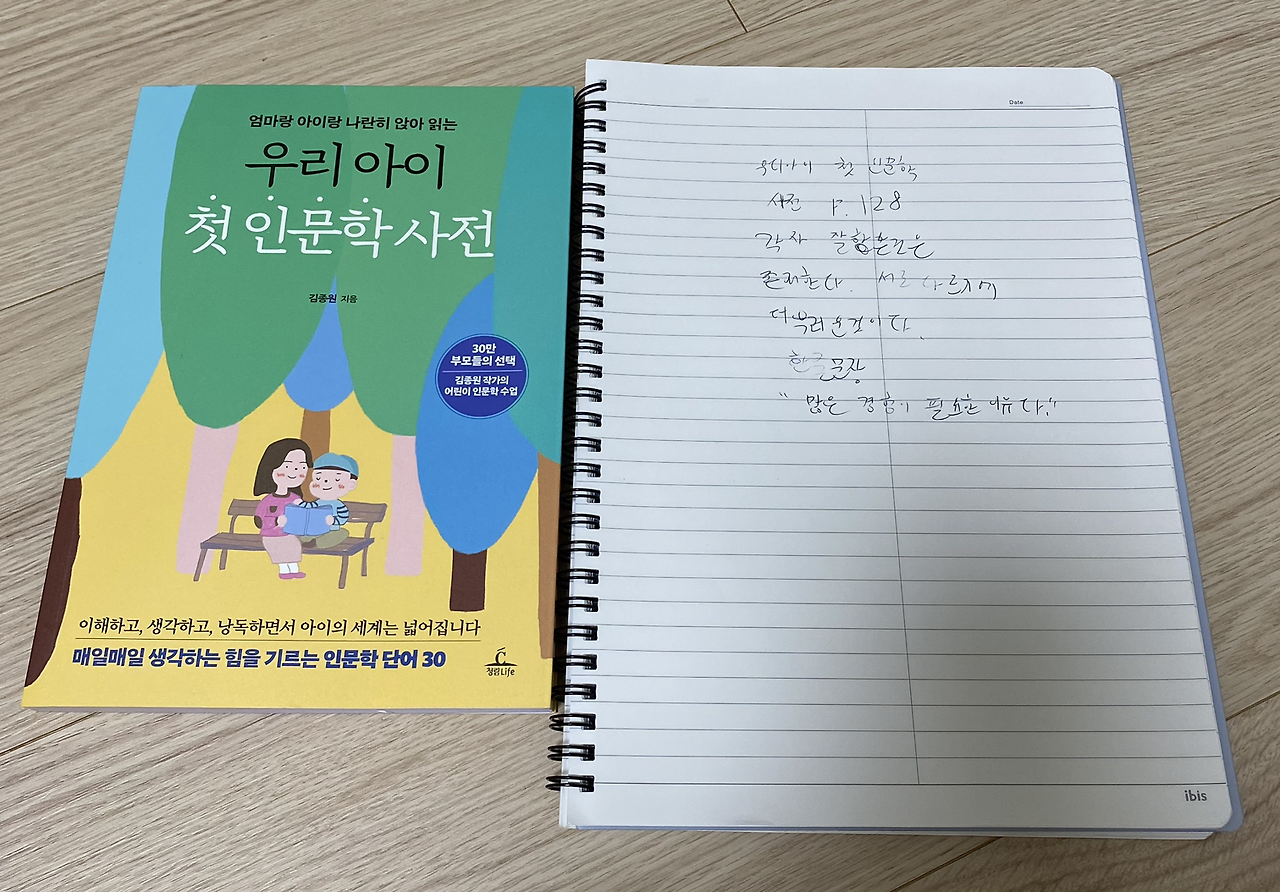 엄마랑 아이랑 나란히 앉아 읽는
우리 아이
첫 인문학 사전
김종원 지음
30만
부모들의 선택
김종원 작가의
어린이 인문학 수업
이해하고, 생각하고, 낭독하면서 아이의 세계는 넓어집니다
매일매일 생각하는 힘을 기르는 인문학 단어 30
청림Life
Date
우리아이 첫 인문학
사전 P. 128
각자 잘함은
존재한다. 서로 다르기에
더
한글문장
"많은 경험이 필요한 이유다."
ibis